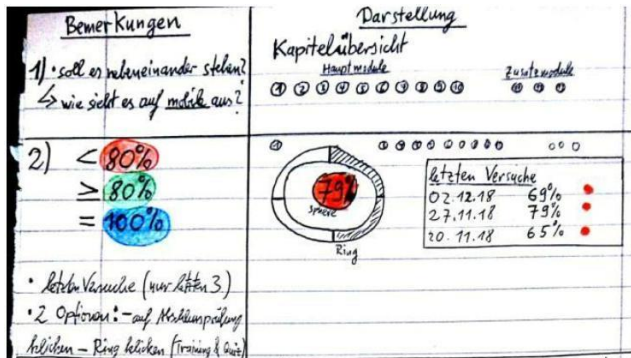 Bemerkungen
1) • soll es nebeneinander stehen?
↳ wie sieht es auf mobile aus?
2) < 80%
≥ 80%
= 100%
• letzten Versuche (nur letzten 3)
• 2 Optionen: - auf
klicken - Ring klicken (Training & Quiz)
Darstellung
Kapitelübersicht
Hauptmodule Zusatzmodule
1 2 3 4 5 6 7 8 9 10
79%
sphere
Ring
letzten Versuche
02.12.18 69%
27.11.18 79%
20.11.18 65%